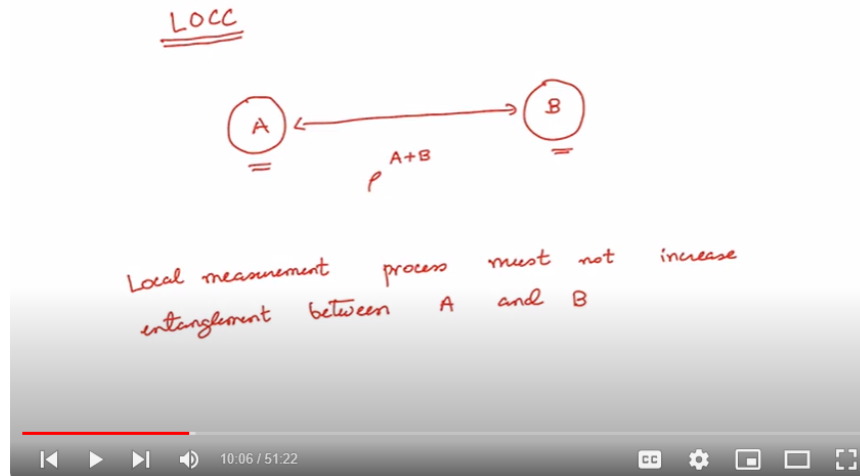 LOCC
A B
ρ^A+B
Local measurement process must not increase
entanglement between A and B
10:06 / 51:22 CC